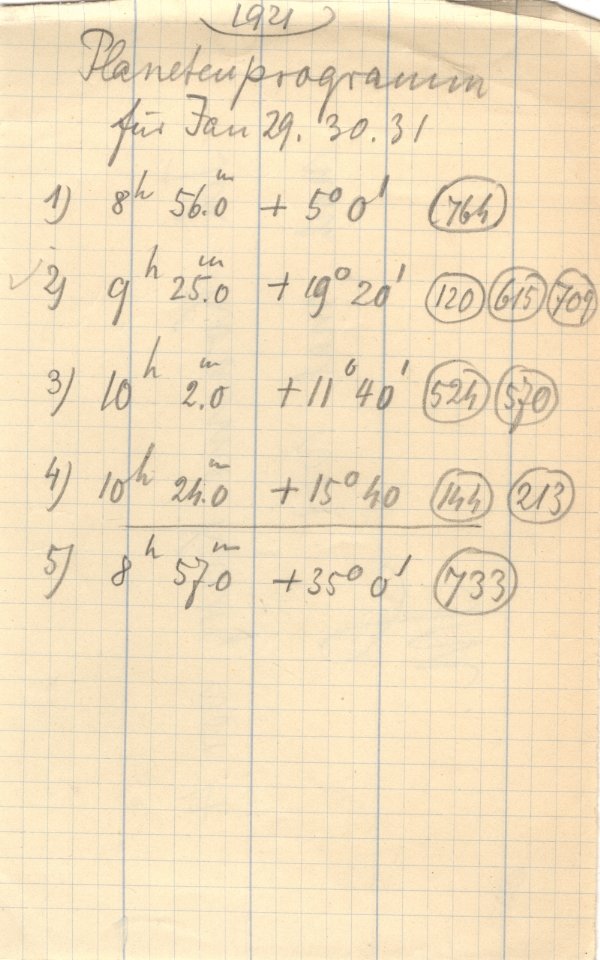 1921
Planetenprogramm
für Jan 29. 30. 31
1) 8h 56.0m + 5° 0' 764
2) 9h 25.0m + 19° 20' 120 615 709
3) 10h 2.0m + 11° 40' 524 570
4) 10h 24.0m + 15° 40 144 213
5) 8h 57.0m + 35° 0' 733